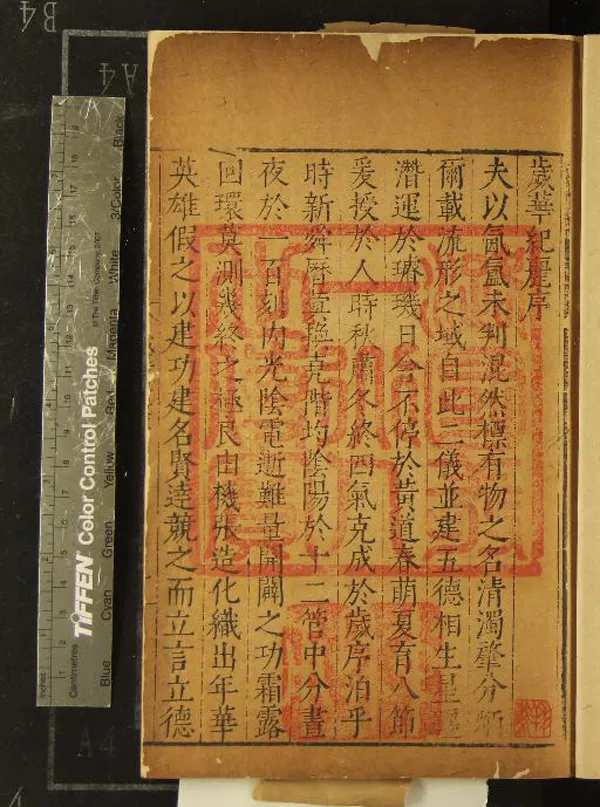 歲華紀麗序
夫以氤氳未判混然標有物之名清濁肇分
爾載流形之域自此二儀並建五德相生星
潛運於璿璣日舍不停於黃道春萌夏育八節
爰授於人時秋肅冬終四氣克成於歲序洎乎
時新舜曆蓂換堯階均陰陽於十二管中分晝
夜於一百刻內光陰電逝難量開闢之功霜露
回環莫測幾終之極良由機張造化織出年華
英雄假之以建功建名賢達競之而立言立德
B4
A4
A4
TIFFEN Color Control Patches
© The Tiffen Company, 2007
Inches
Centimetres
Blue
Cyan
Green
Yellow
Red
Magenta
White
3/Color
Black